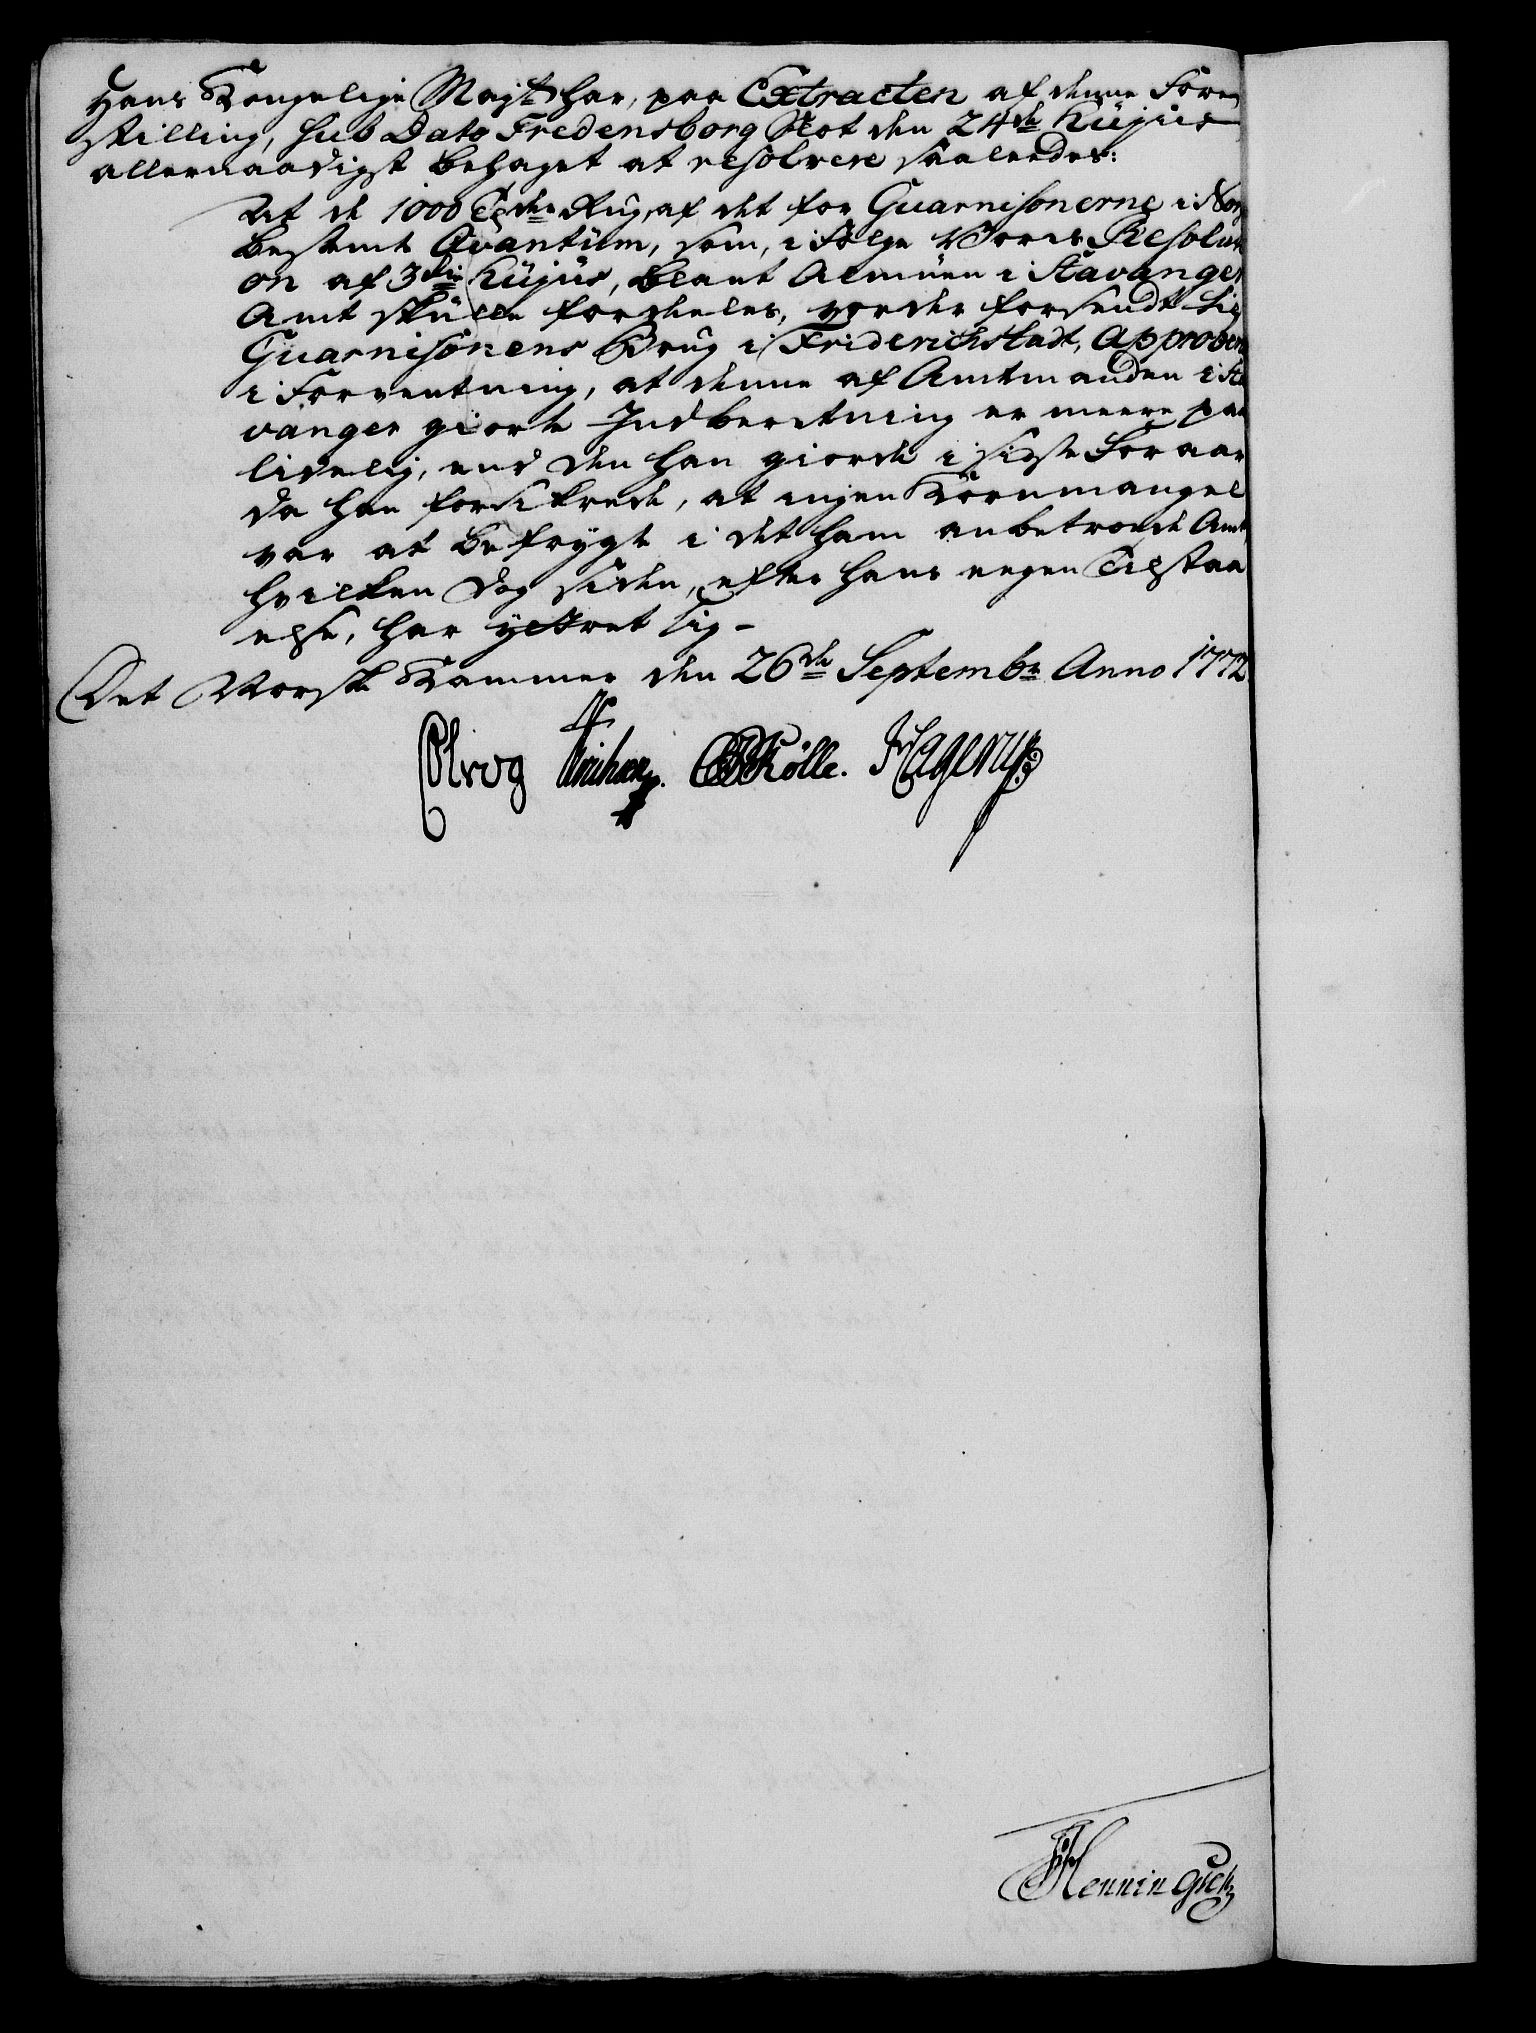 Hans Kongelige Majt: har, paa Extracten af denne Fore-
stilling, sub Dato Fredensborg Slot den 24de hüjüs
allernaadigst behaget at resolvere saaledes:
At de 1000 Tdr Rug, af det for Guarnisonerne i Norge
bestemt Qvantüm, som, i følge Vores Resoluti
on af 3die hüjüs, blant Almüen i Stavanger
Amt skülle fordeles, vorder forsendt til
Guarnisonens Brug i Friderichstadt, approberes
i Forventning, at denne af Amtmanden i Sta
vanger giorte Indberetning er meere paa
lidelig, end den han giorde i sidste Foraar
da han forsikrede, at ingen Kornmangel
var at befrygte i det ham anbetroede Amt,
hvilken dog siden, efter hans egen Tilstaa
else, har yttret sig –
Det Norske Kammer den 26de Septembr Anno 1772.
Kølle. Hagerup
Henningsen